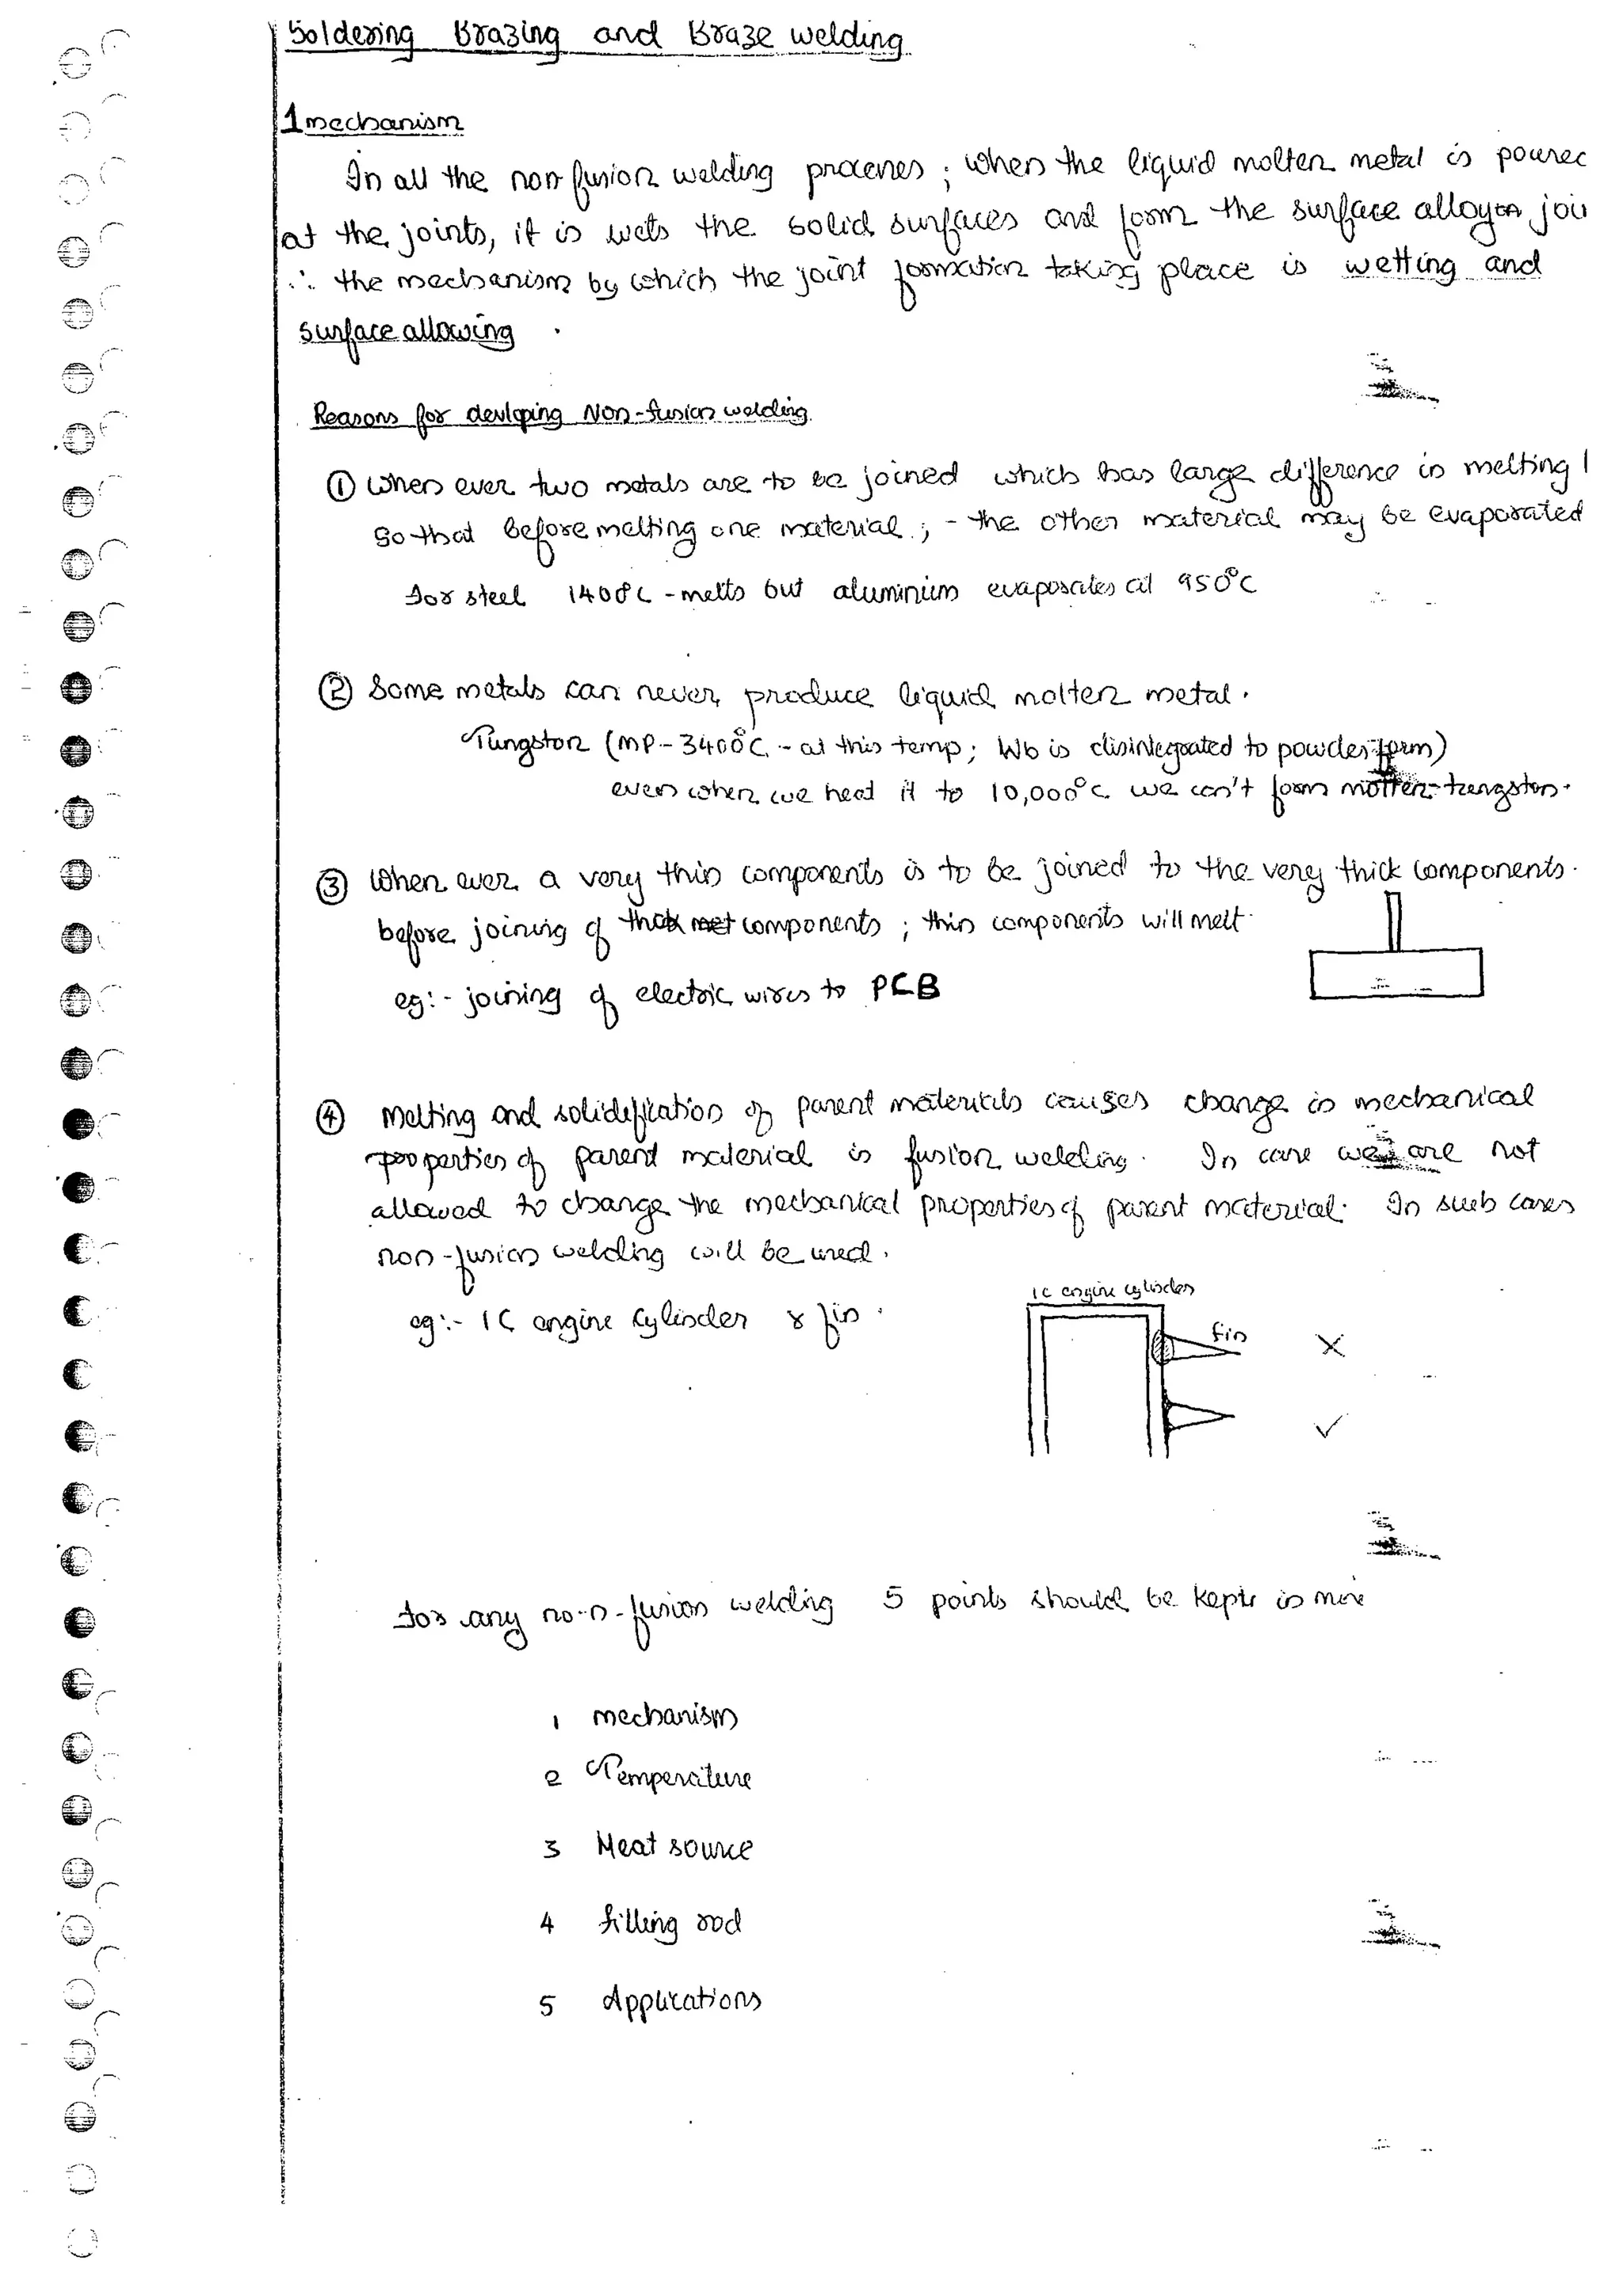 Soldering Brazing and Braze welding
1 mechanism
In all the non fusion welding processes ; when the liquid molten metal is poured
at the joints, it is wets the solid surfaces and form the surface alloy on joi
∴ the mechanism by which the joint formation taking place is wetting and
surface allowing .
Reasons for devloping Non-fusion welding.
① When ever two metals are to be joined which has large difference in melting
So that before melting one material ; - the other material may be evaporated
For steel 1400°C - melts but aluminium evaporates at 950°C
② Some metals can never produce liquid molten metal .
Tungston (MP - 3400°C - at this temp; Wb is disintegrated to powder form)
even when we heat it to 10,000°C we can't form molten tungston.
③ When ever a very thin components is to be joined to the very thick components .
before joining of thick met components ; thin components will melt .
eg:- joining of electric wires to PCB
④ Melting and solidefication of parent materials causes change in mechanical
properties of parent material in fusion welding . In case we are not
allowed to change the mechanical properties of parent material . In such cases
non-fusion welding will be used .
IC engine cylinder
eg:- IC engine cylinder & fin .
fin
X
✓
For any non-fusion welding 5 points should be kept in
1 mechanism
2 Temperature
3 Heat source
4 filling rod
5 Applications